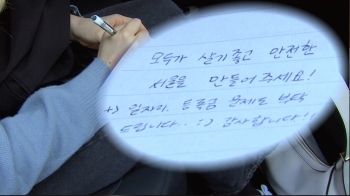 모두가 살기좋고 안전한
서울을 만들어주세요!
+) 일자리, 등록금 문제도 부탁
드립니다.. :) 감사합니다!!